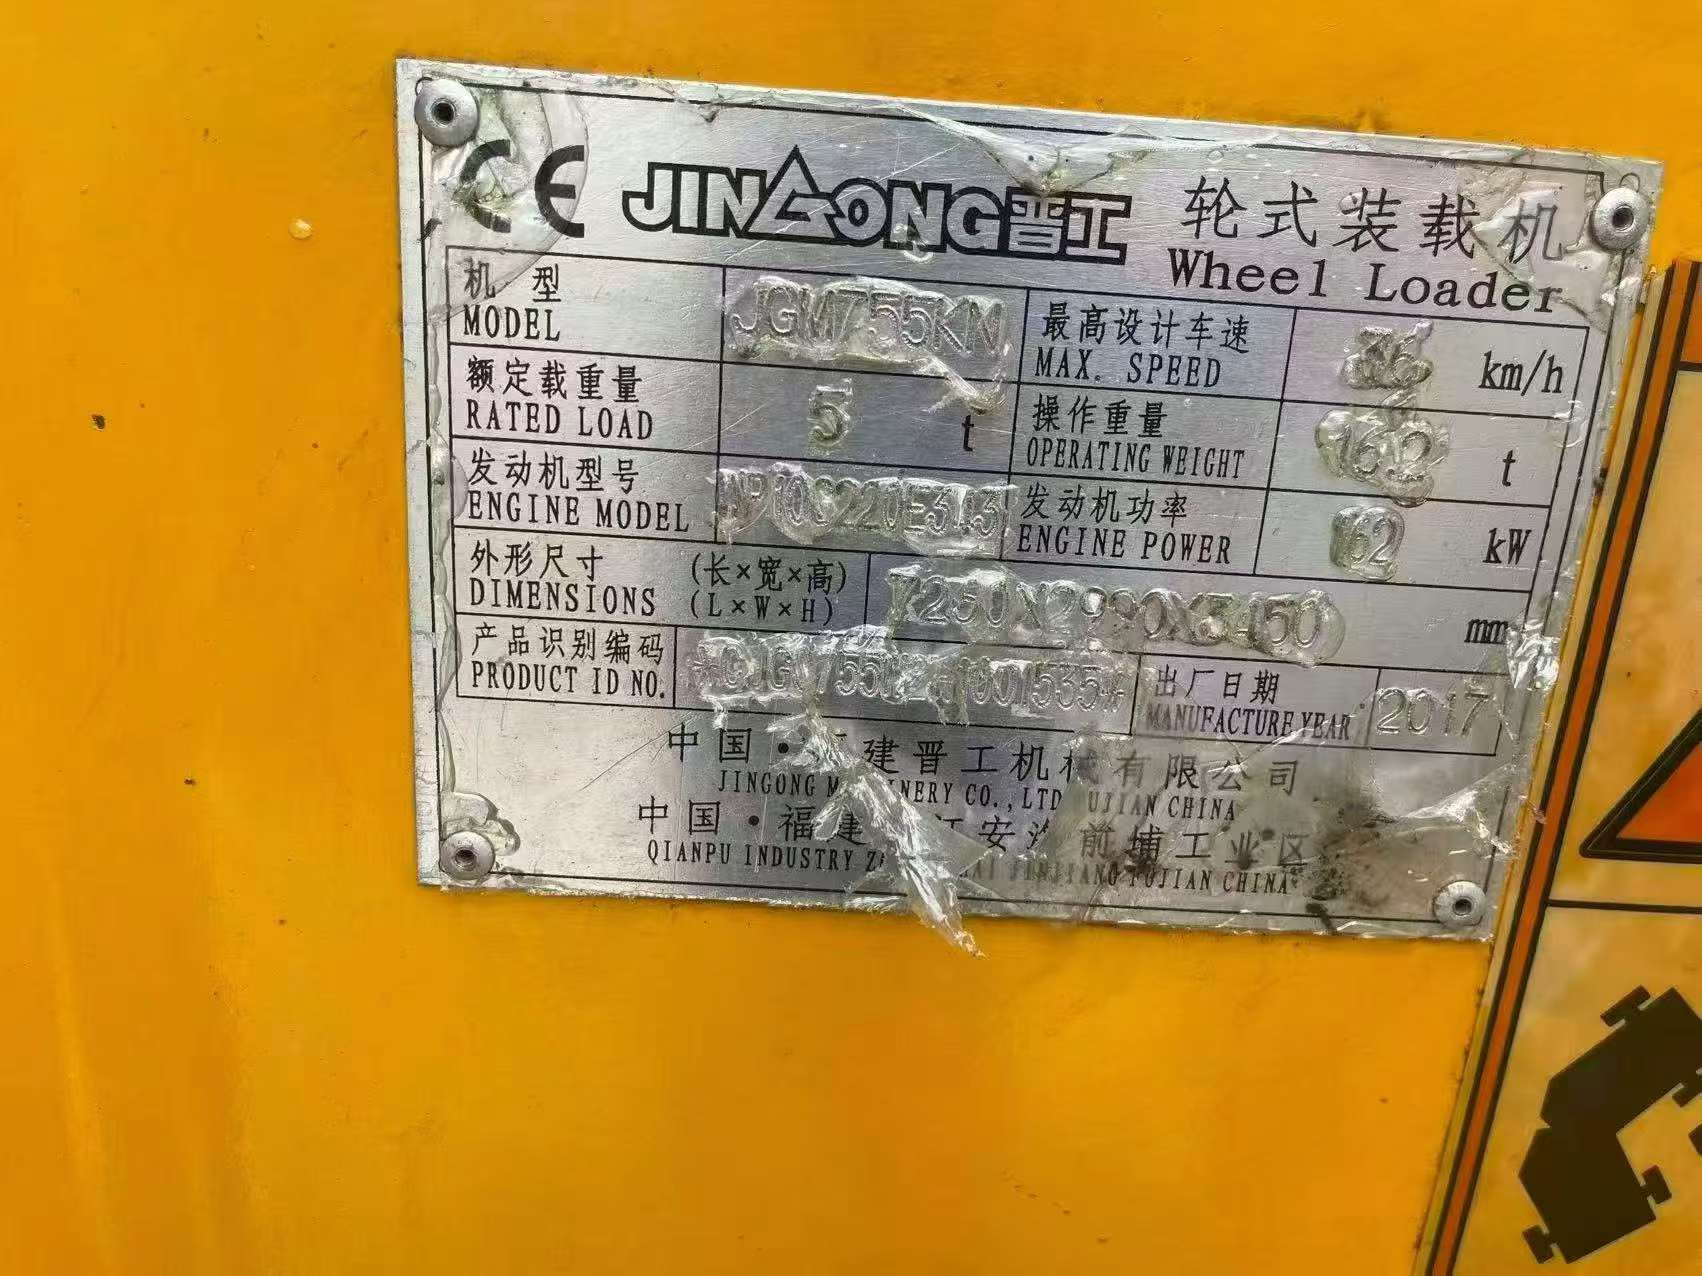 CE JINGONG晋工 轮式装载机
Wheel Loader
机 型 JGM755KN 最高设计车速 36 km/h
MODEL MAX. SPEED
额定载重量 5 t 操作重量 t
RATED LOAD OPERATING WEIGHT
发动机型号 发动机功率 162 kW
ENGINE MODEL ENGINE POWER
外形尺寸 (长×宽×高) mm
DIMENSIONS (L×W×H)
产品识别编码 出厂日期 2017
PRODUCT ID NO. MANUFACTURE YEAR
中国· 建晋工机械有限公司
JINGONG CO.,LTD CHINA
中国·福建 安 前埔工业区
QIANPU INDUSTRY JINJIANG FUJIAN CHINA